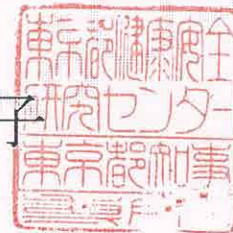 子
東京都健康安全
研究センター
東京都知事